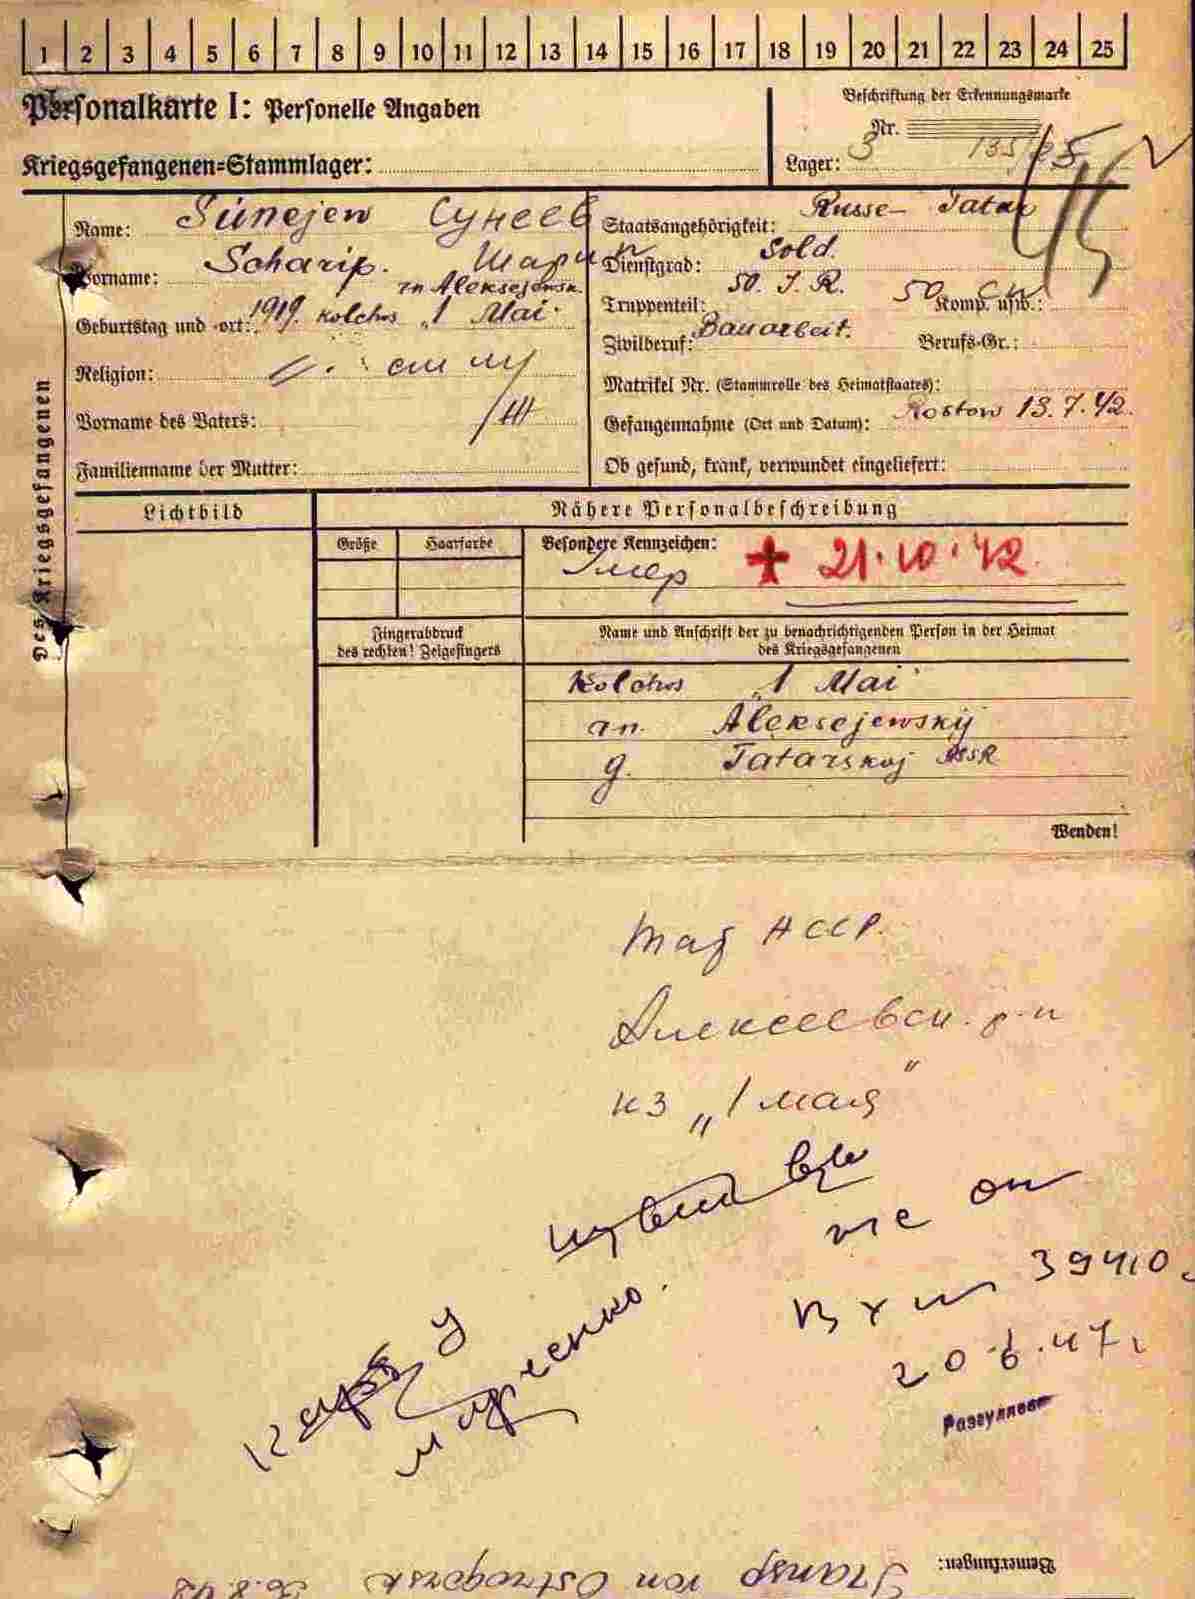 1 2 3 4 5 6 7 8 9 10 11 12 13 14 15 16 17 18 19 20 21 22 23 24 25
Personalkarte I: Personelle Angaben
Kriegsgefangenen-Stammlager:
Beschriftung der Erkennungsmarke
Nr.
Lager:
Des Kriegsgefangenen
Name: Sünejew Сунеев
Vorname: Scharip. Шарип
рн Aleksejewsk.
Geburtstag und -ort: 1919. Kolchos „1 Mai"
Religion:
Vorname des Vaters:
Familienname der Mutter:
Staatsangehörigkeit: Russe- Tatar
Dienstgrad: Sold.
Truppenteil: 50. J. R. 50 Komp. usw.:
Zivilberuf: Bauarbeit. Berufs-Gr.:
Matrikel Nr. (Stammrolle des Heimatstaates):
Gefangennahme (Ort und Datum): Rostow 13.7.42.
Ob gesund, krank, verwundet eingeliefert:
Lichtbild
Nähere Personalbeschreibung
Größe Haarfarbe Besondere Kennzeichen:
Умер 21.10.42.
Fingerabdruck
des rechten! Zeigefingers
Name und Anschrift der zu benachrichtigenden Person in der Heimat
des Kriegsgefangenen
Kolchos „1 Mai"
рн. Aleksejewskij
g. Tatarskoj ASSR
Wenden!
Тат АССР.
Алексеевск. р-н
кз „1 мая"
же он
Вх 39410
20.6.47г
карт у
Марченко.
Bemerkungen:
Transp von Ostrogorsk